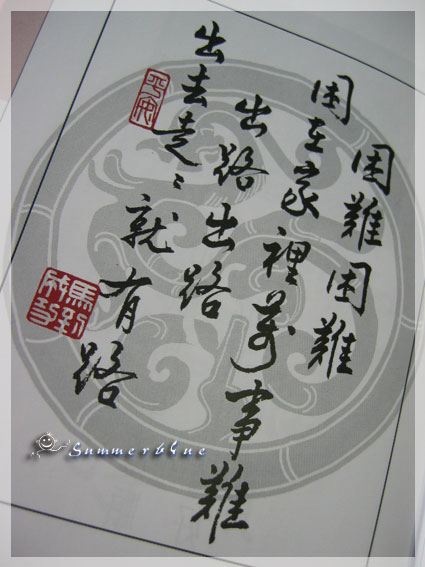 困難困難
困在家裡萬事難
出路出路
出去走〻就有路
平安
馬到成功
Summerblue